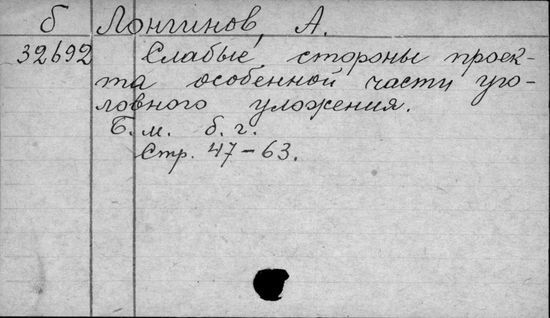 б Лонгинов, А.
32692 Слабые стороны проек-
та особенной части уго-
ловного уложения.
Б. м. б. г.
Стр. 47-63.